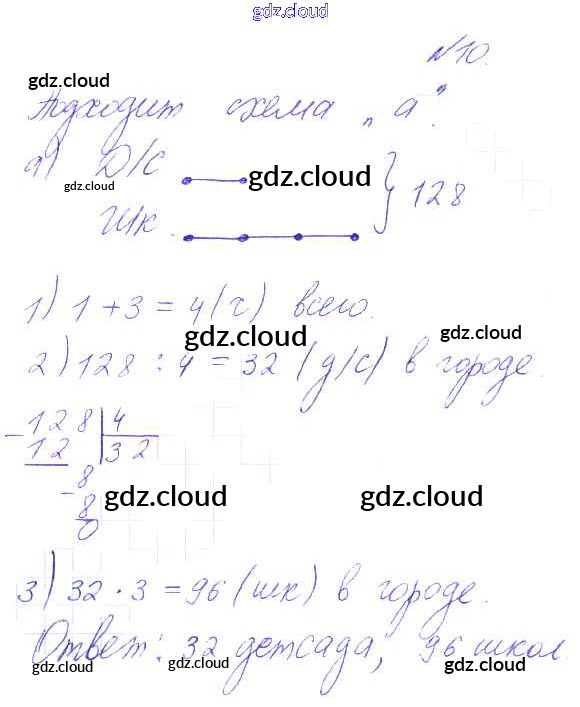 gdz.cloud
№10.
gdz.cloud
Подходит схема „а".
а) Д/с gdz.cloud
gdz.cloud
Шк. } 128
1) 1 + 3 = 4 (ч) всего.
gdz.cloud gdz.cloud
2) 128 : 4 = 32 (д/с) в городе.
- 128 | 4
12 | 32
- 8
8
gdz.cloud gdz.cloud
0
3) 32 · 3 = 96 (шк) в городе.
gdz.cloud
Ответ: 32 детсада, 96 школ.
gdz.cloud gdz.cloud